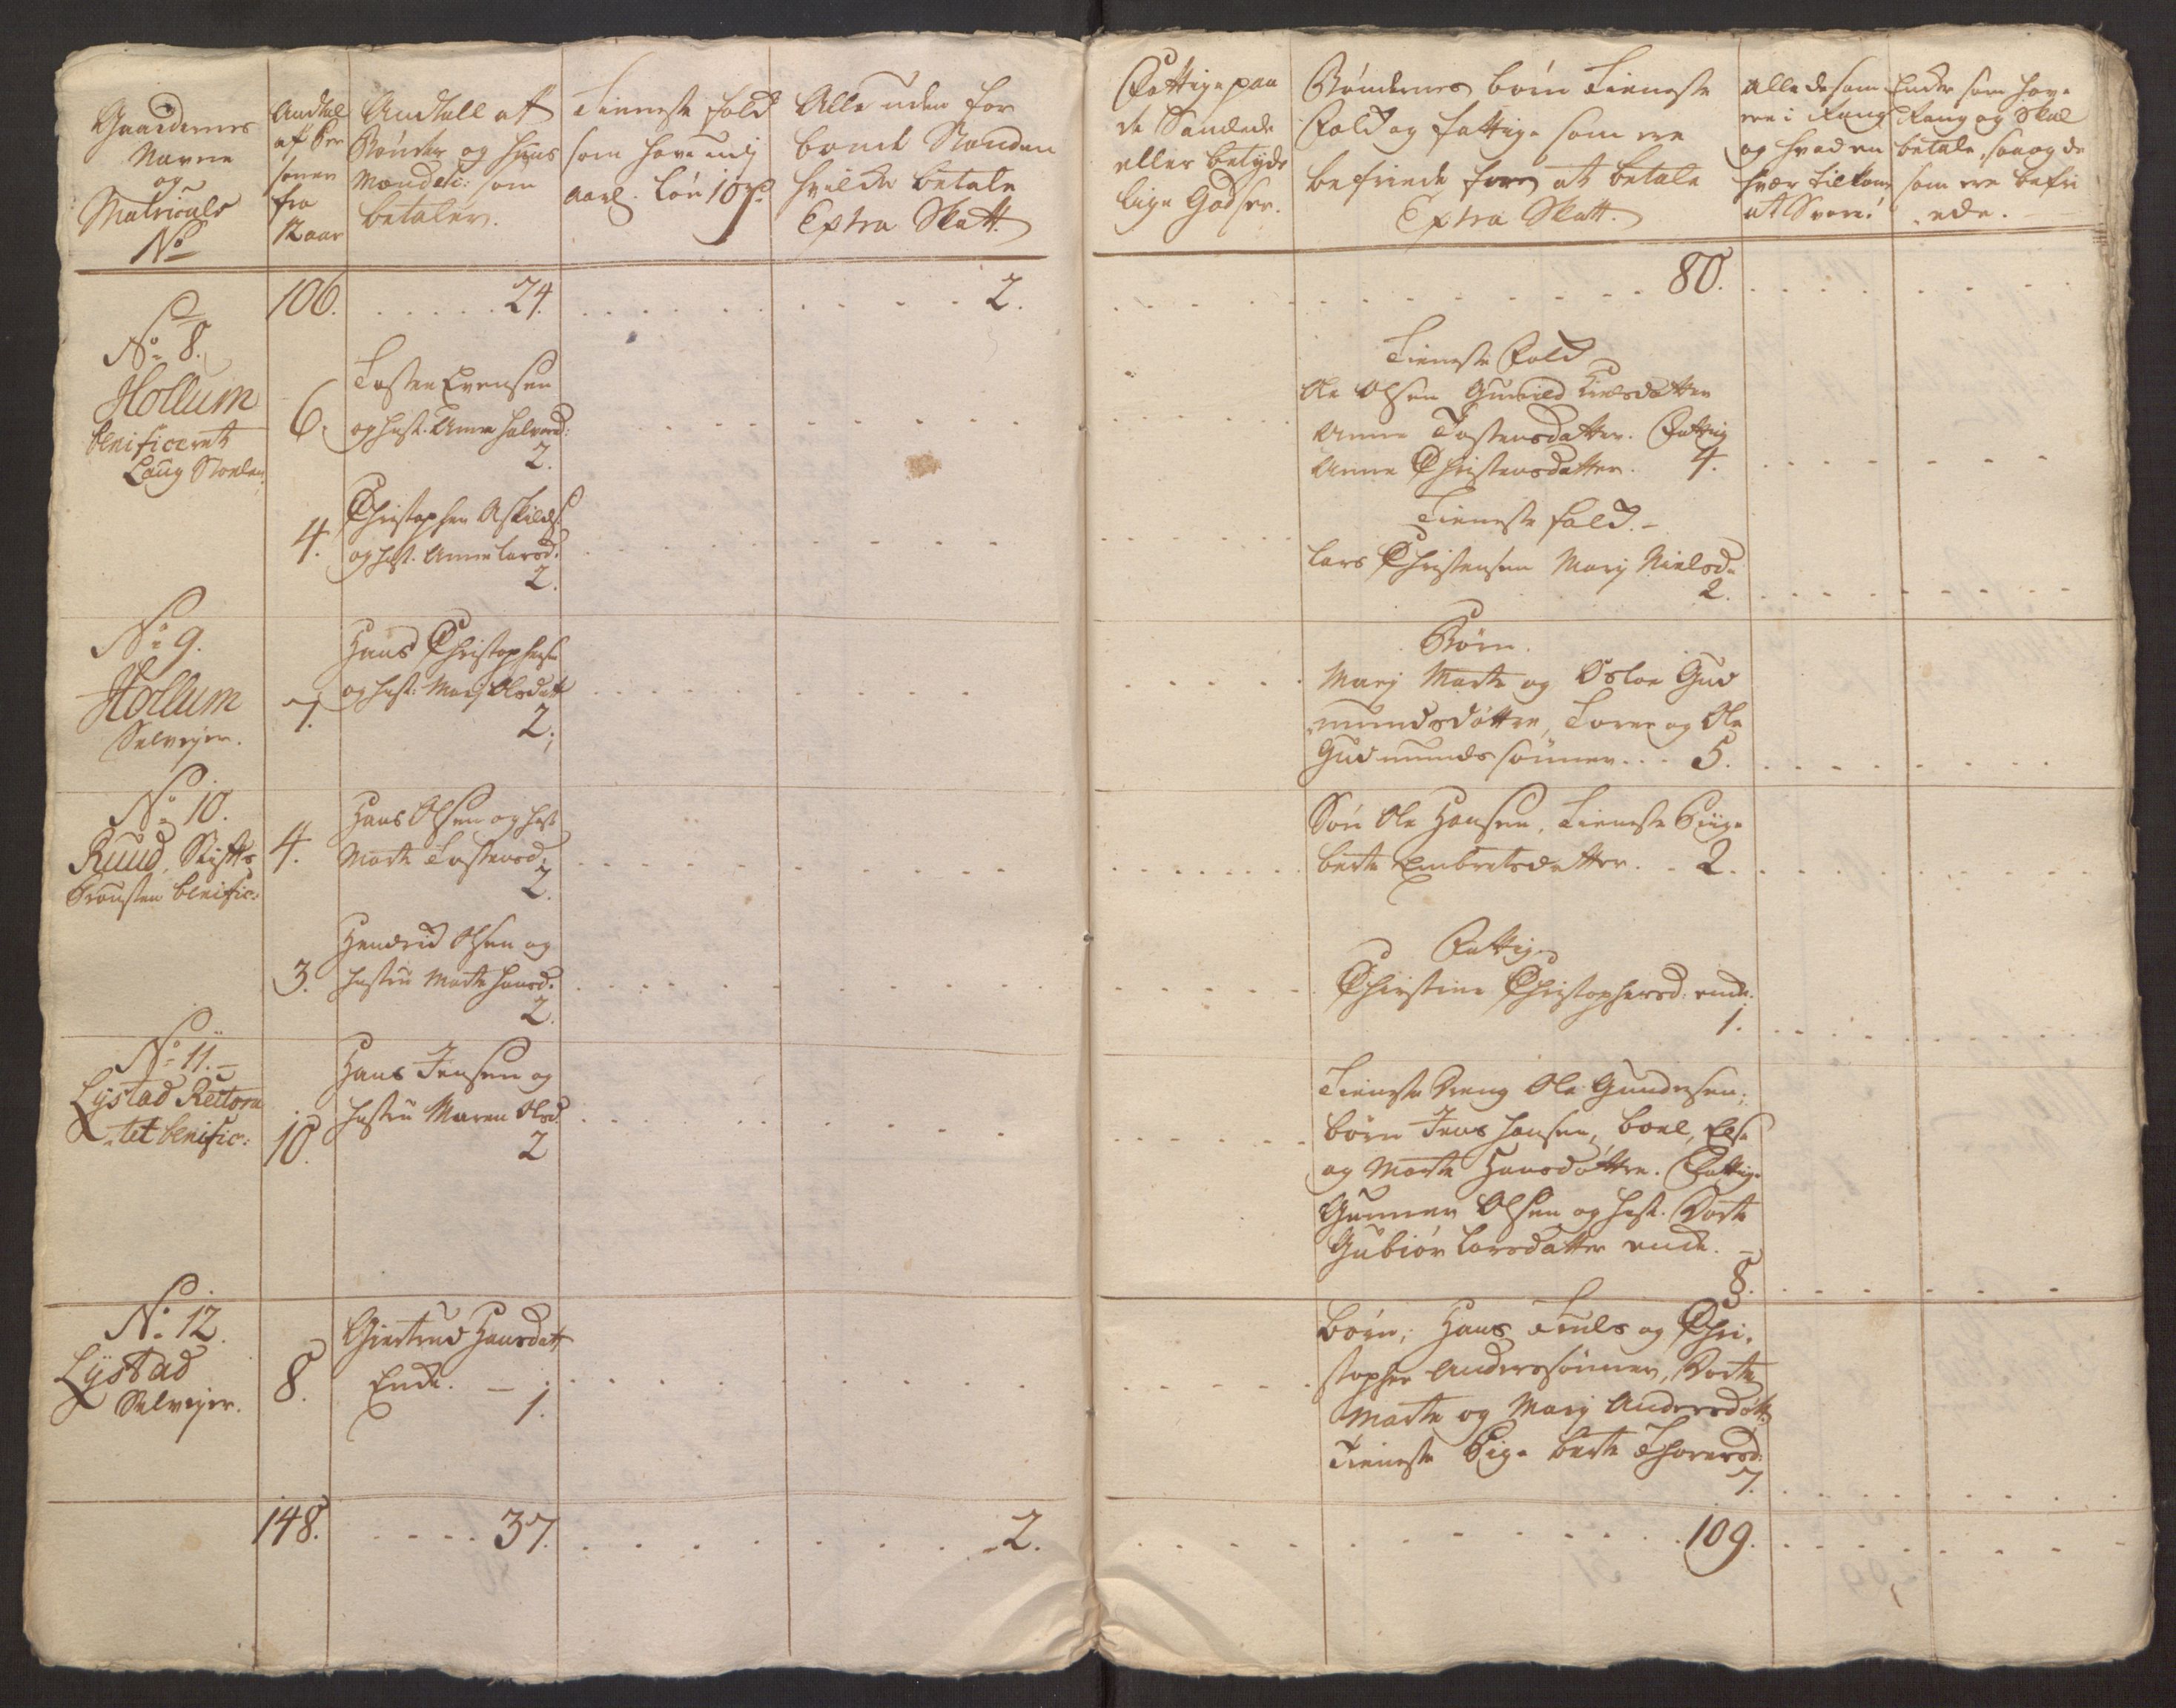 Gaardernes
Navne
og
Matriculs
No
Andtal
af Per
soner
fra
12 aar
Andtall af
Bönder og Huus
Mænd etc: som
betaler.
Tieneste Folk
som have
aarl. Lön 10 rd
Alle uden for
bonde Standen
hvilke betale
Extra Skatt.
Fattige paa
de Samlede
eller betyde
lige Godser.
Böndernes börn Tieneste
Folk og fattige som ere
befriede for at betale
Extra Skatt.
Alle de som
ere i Rang
og hvad en
hver tilkom
at Svare.
Enker som have
Rang og Skal
betale, saa og de
som ere befri
ede.
106. 24. 2. 80.
No 8.
Hollum
benificeret
Laug Stolen
6.
Tosten Evensen
og hust. Anne Halvord:
2.
Tieneste Folk
Ole Olsen Gunild
Anne Tostensdatter. Fattig
Anne Christensdatter. 4.
4.
Christopher Askilds:
og hust. Anne Larsd:
2.
Tieneste folk.
Lars Christensen Marj Nielsd:
2.
No 9.
Hollum
Selvejer.
7.
Hans Christophers:
og hust: Marj Olsdatt
2.
Börn.
Marj Marte og Osloe Gud
mundsdöttre, Tore og Ole
Gudmunds sönner. 5.
No 10.
Ruud, Stifts
Prousten benific:
4.
Hans Olsen og hust
Marte Tostensd:
2.
Sön Ole Hansen, Tieneste Piige
berte Embretsdatter. 2.
3.
Hendrich Olsen og
hustru Marte Hansd:
2.
Fattige
Christine Christophersd: enke.
1.
No 11.
Lystad Rectora
tet benific:
10.
Hans Jensen og
hustru Maren Olsd.
2
Tieneste Dreng Ole Gundersen,
börn Jens Hansen, boel, Else
og Marte Hansdöttre. Fattige
Gunner Olsen og hust. Dorte
Gubiör Larsdatter enke.
8.
No 12.
Lystad
Selvejer.
8.
Giertrud Hansdatt
Enke.
1.
Börn, Hans Truls og Chri-
stopher Anderssönner, Dorte
Marte og Marj Andersdött:
Tieneste Pige berte Thoresd:
7.
148. 37. 2. 109.